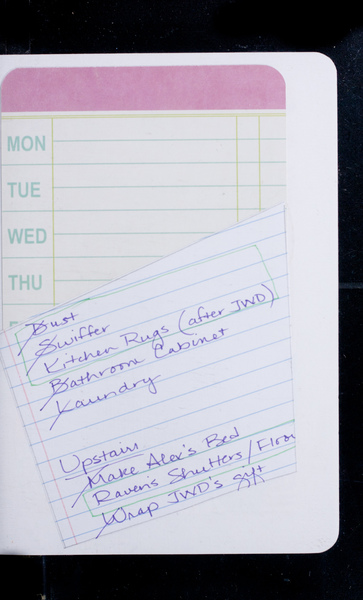 MON
TUE
WED
THU
Dust
Swiffer
Kitchen Rugs (after JWD)
Bathroom Cabinet
Laundry
Upstairs
Make Alex's Bed
Raven's Shutters/Floor
Wrap JWD's gift